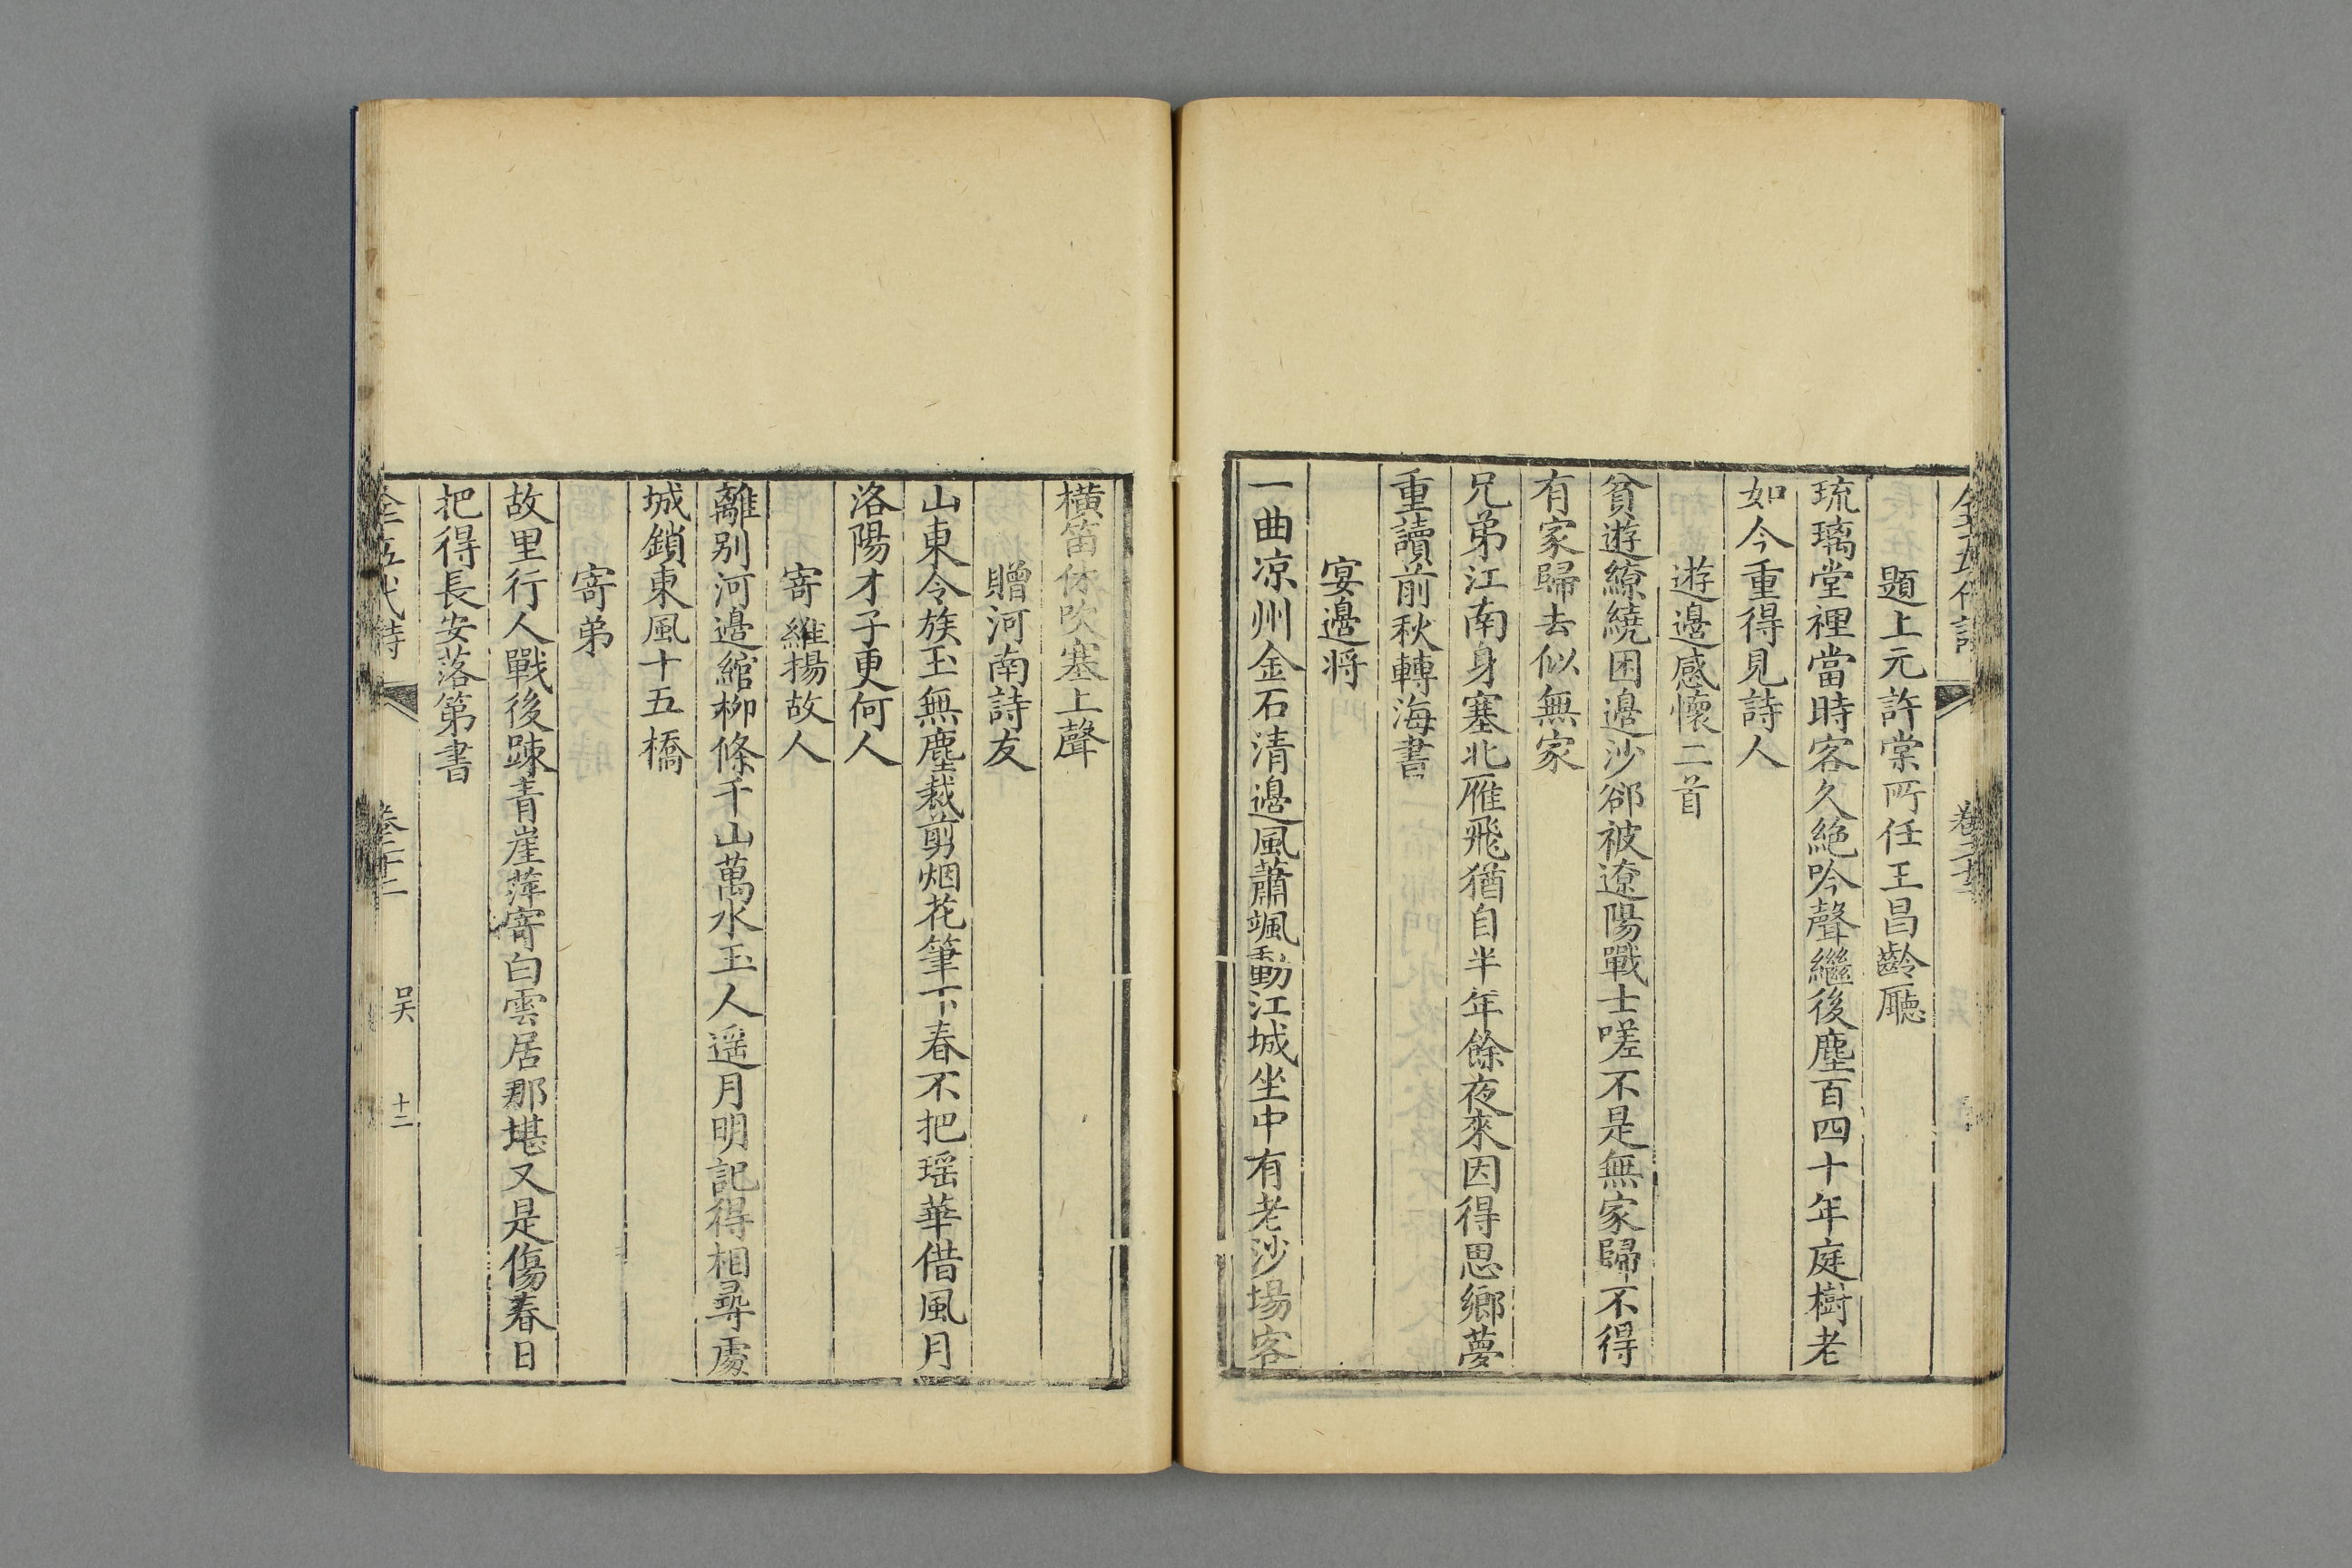 題上元許棠所任王昌齡廳
琉璃堂裡當時客久絶吟聲繼後塵百四十年庭樹老
如今重得見詩人
遊邊感懷二首
貧遊繚繞困邊沙郤被遼陽戰士嗟不是無家歸不得
有家歸去似無家
兄弟江南身塞北雁飛猶自半年餘夜來因得思鄉夢
重讀前秋轉海書
宴邊将
一曲凉州金石清邊風蕭颯動江城坐中有老沙場客
橫笛休吹塞上聲
贈河南詩友
山東令族玉無塵裁剪烟花筆下春不把瑶華借風月
洛陽才子更何人
寄維揚故人
離別河邊綰柳條千山萬水玉人遥月明記得相尋處
城鎖東風十五橋
寄弟
故里行人戰後踈青崖萍寄白雲居那堪又是傷春日
把得長安落第書
全五代詩 吴 十二